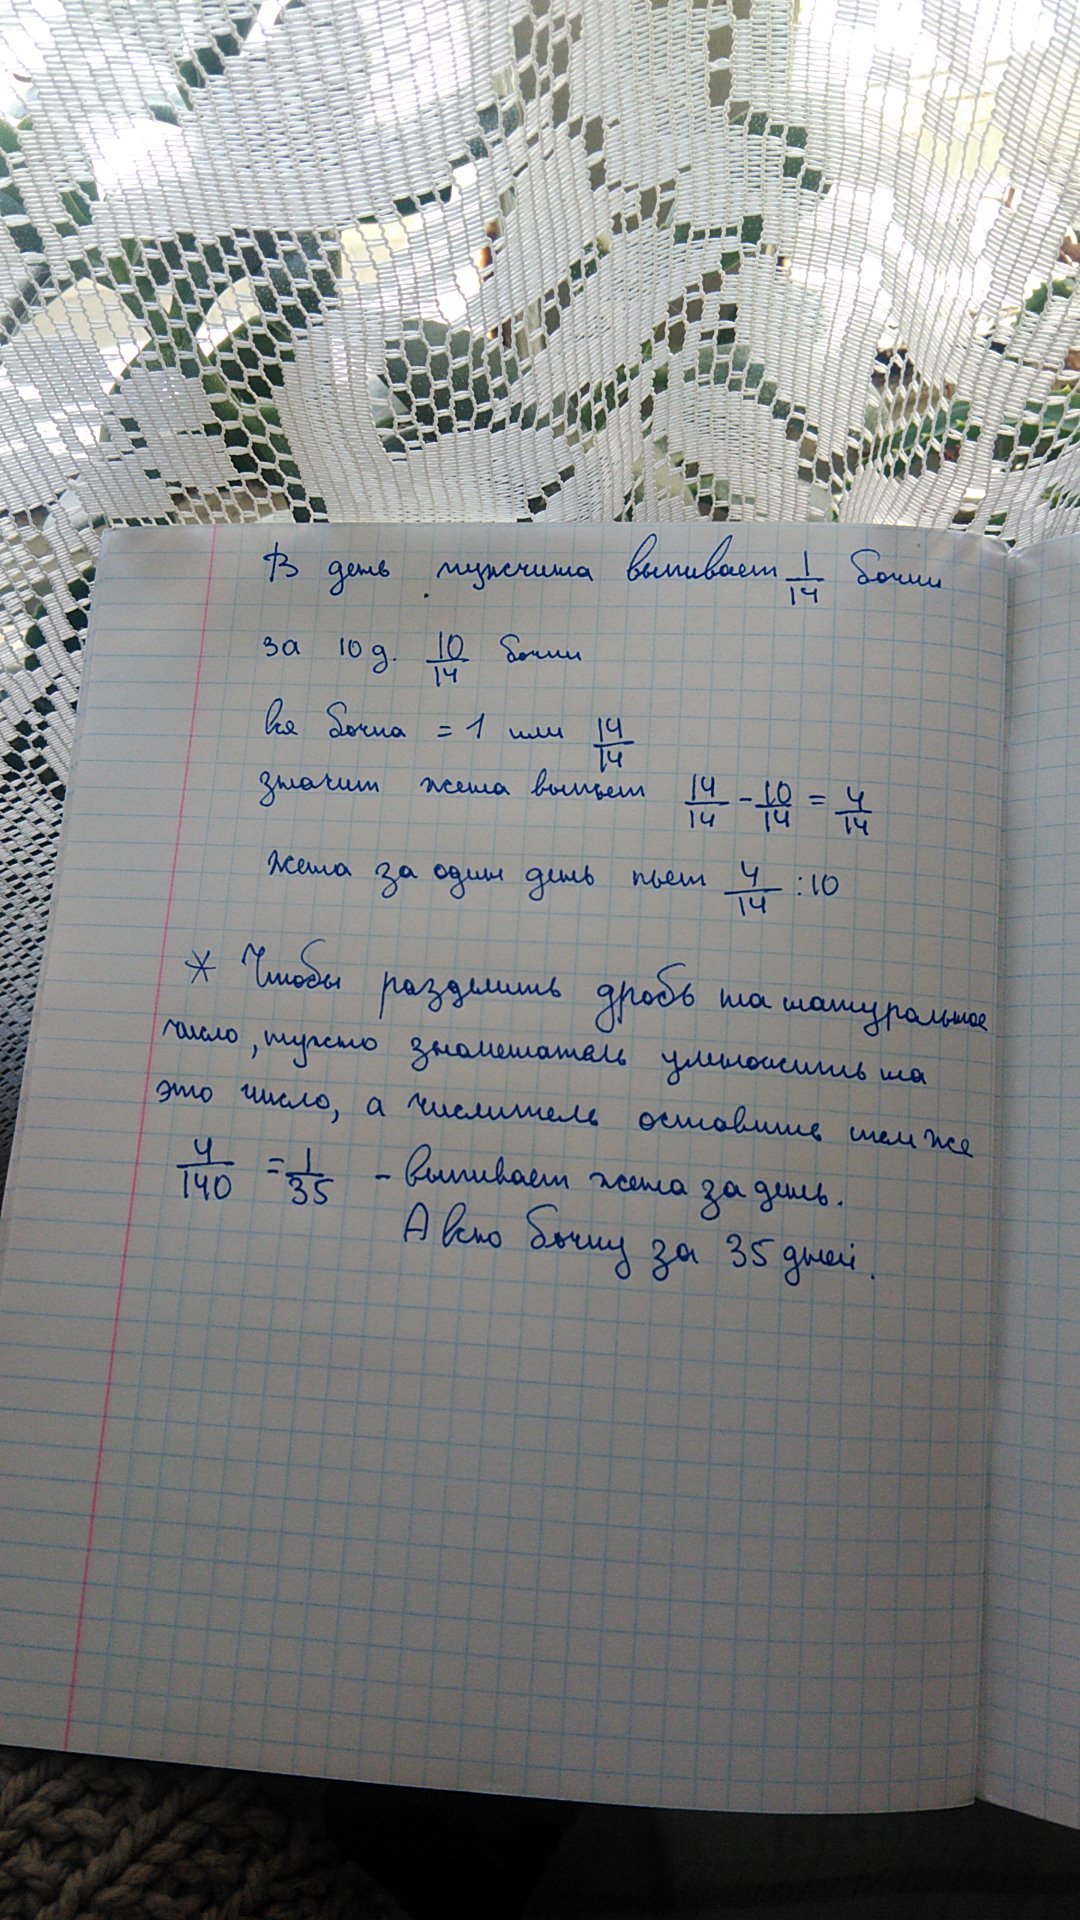 В день мужчина выпивает 1/14 бочки
за 10 д. 10/14 бочки
вся бочка = 1 или 14/14
значит жена выпьет 14/14 - 10/14 = 4/14
жена за один день пьет 4/14 : 10
* Чтобы разделить дробь на натуральное
число, нужно знаменатель умножить на
это число, а числитель оставить тем же
4/140 = 1/35 - выпивает жена за день.
А всю бочку за 35 дней.